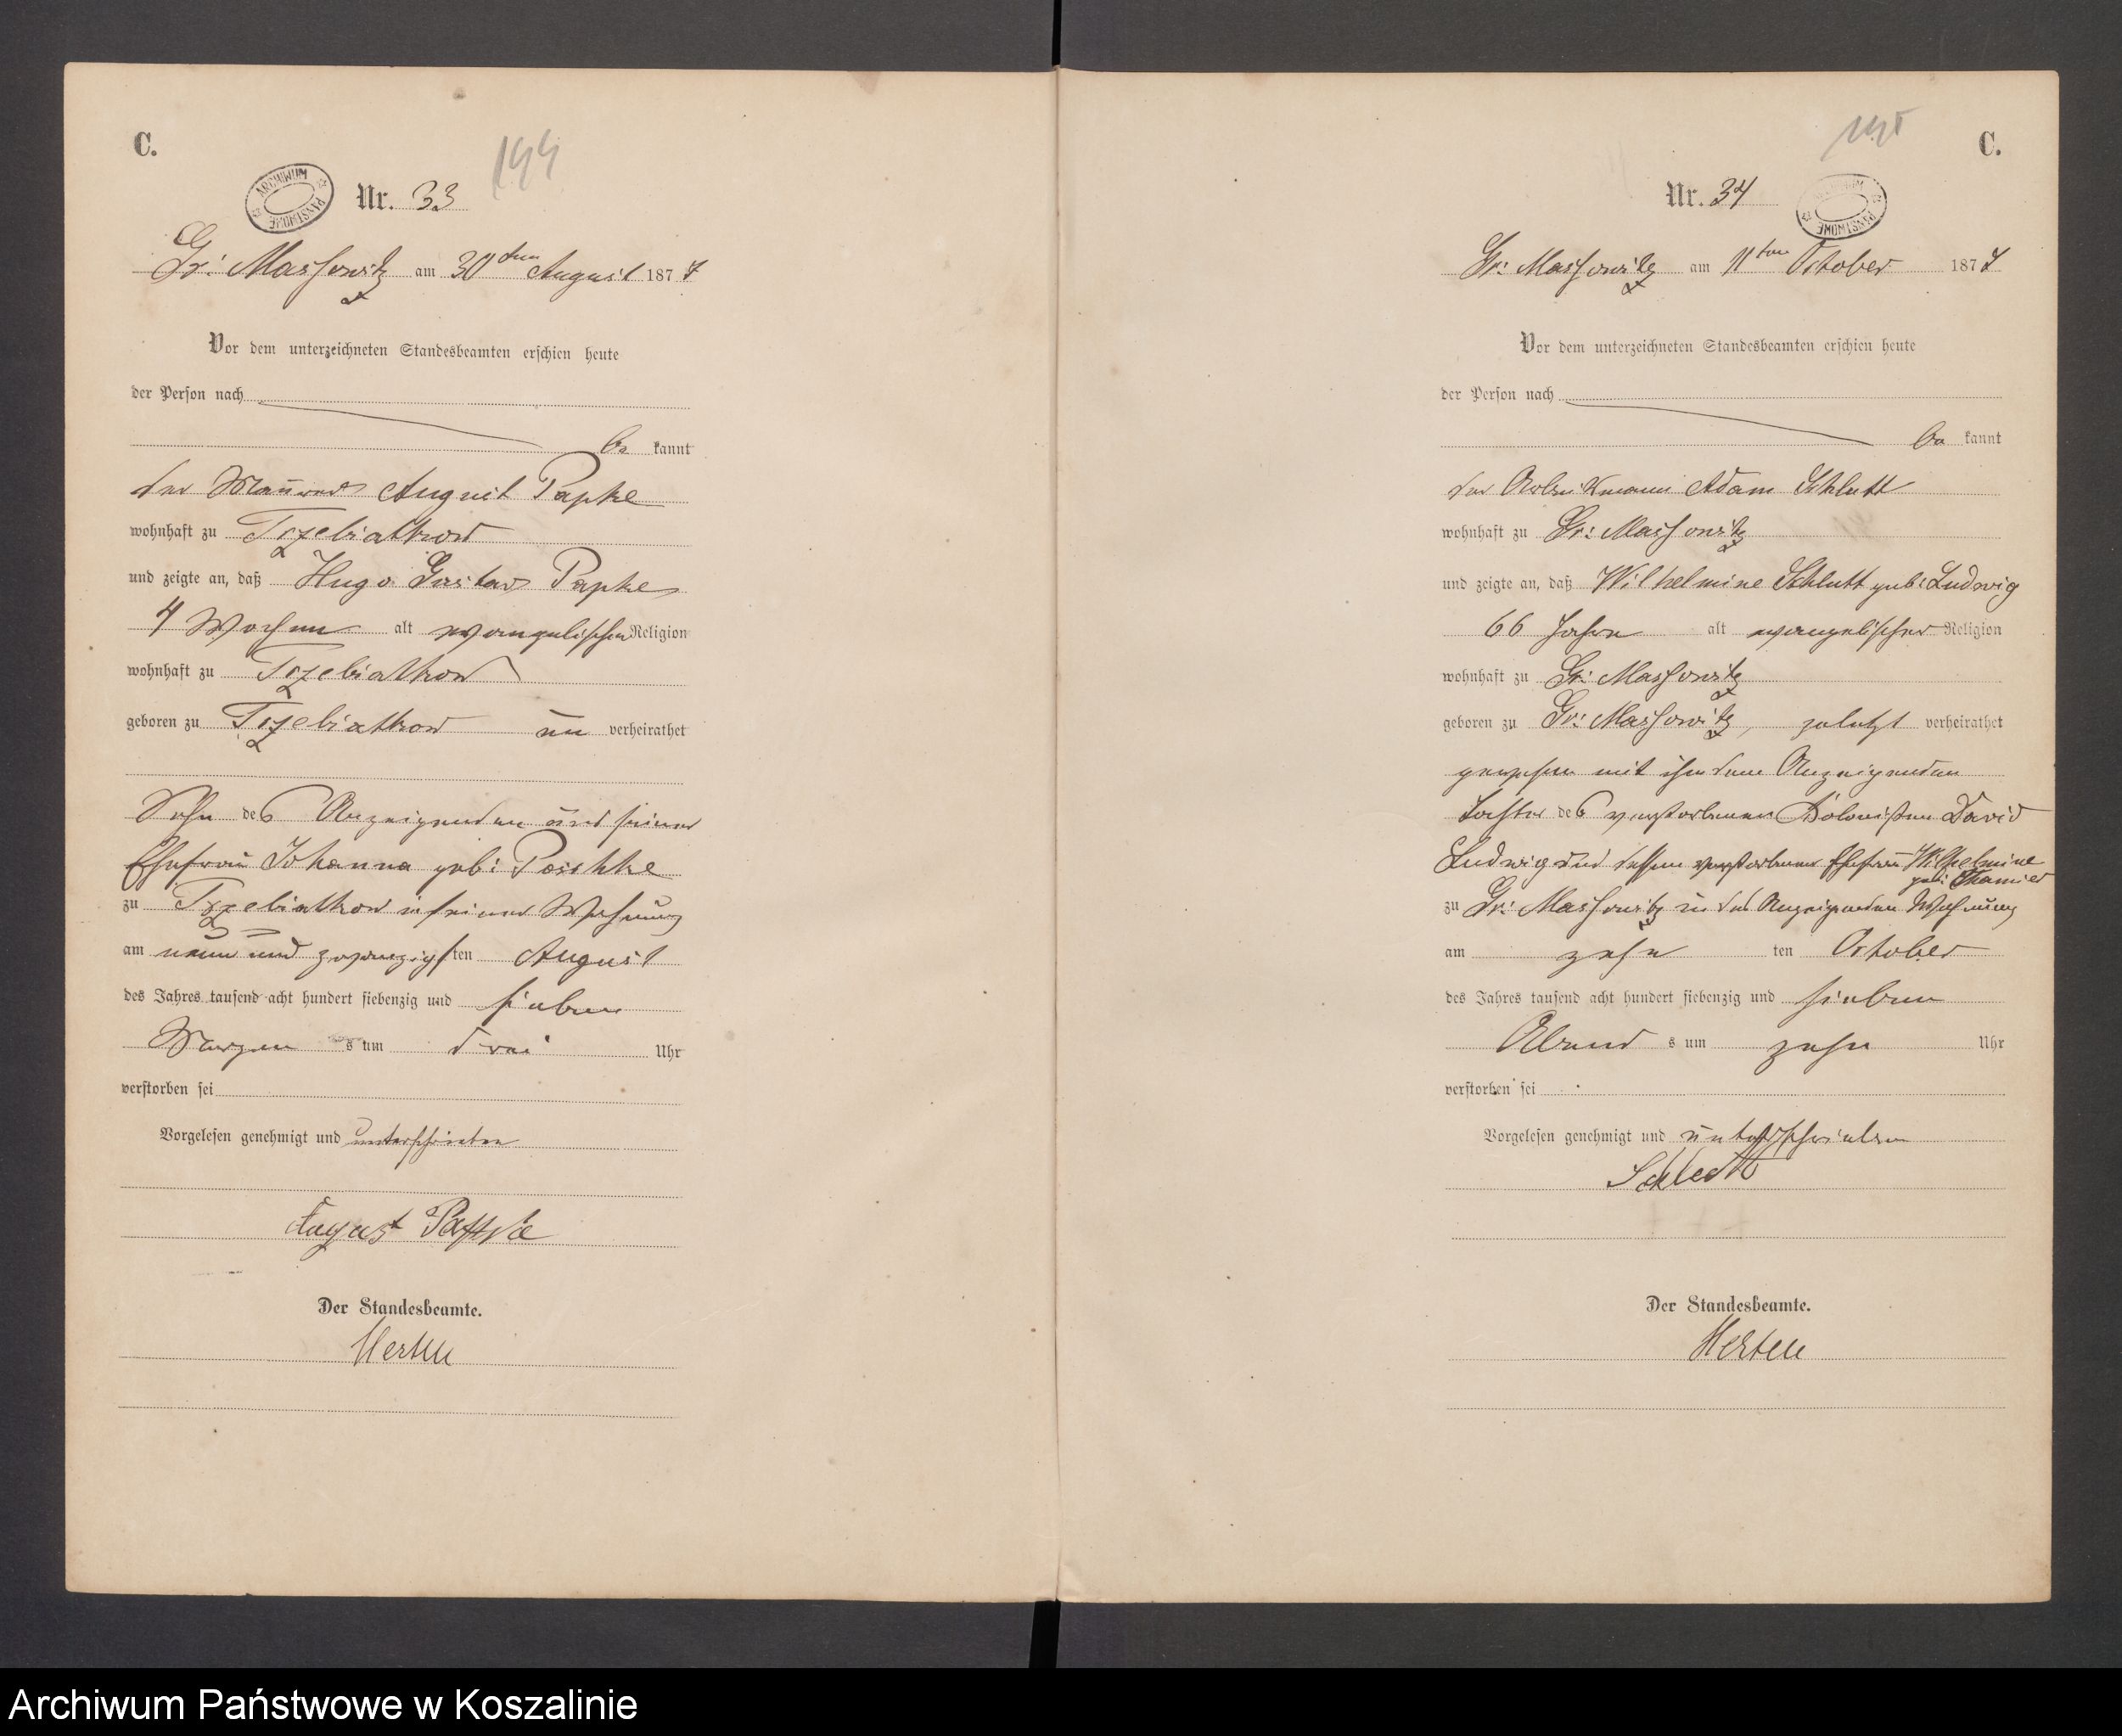 C.
194
ARCHIWUM PAŃSTWOWE
Nr. 33
Gr: Massowitz am 30ten August 1877
Vor dem unterzeichneten Standesbeamten erschien heute
der Person nach
be kannt
der Maurer August Papke
wohnhaft zu Trzebiatkow
und zeigte an, daß Hugo Gustav Papke
4 Wochen alt evangelischer Religion
wohnhaft zu Trzebiatkow
geboren zu Trzebiatkow un verheirathet
Sohn des Anzeigenden und seiner
Ehefrau Johanna geb: Paschke
zu Trzebiatkow in seiner Wohnung
am neun und zwanzigsten August
des Jahres tausend acht hundert siebenzig und sieben
Morgen s um drei Uhr
verstorben sei
Vorgelesen genehmigt und unterschrieben
August Papke
Der Standesbeamte.
C.
195
ARCHIWUM PAŃSTWOWE
Nr. 34
Gr: Massowitz am 11ten October 1877
Vor dem unterzeichneten Standesbeamten erschien heute
der Person nach
be kannt
der Adam Schlutt
wohnhaft zu Gr: Massowitz
und zeigte an, daß Wilhelmine Schlutt geb: Ludwig
66 Jahre alt evangelischer Religion
wohnhaft zu Gr: Massowitz
geboren zu Gr: Massowitz, zuletzt verheirathet
gewesen mit ihm dem Anzeigenden
Tochter des verstorbenen Kolonisten David
Ludwig und dessen verstorbenen Ehefrau Wilhelmine
geb:
zu Gr: Massowitz in des Anzeigenden Wohnung
am zehn ten October
des Jahres tausend acht hundert siebenzig und sieben
Abend s um zehn Uhr
verstorben sei
Vorgelesen genehmigt und unterschrieben
Schlutt
Der Standesbeamte.
Archiwum Państwowe w Koszalinie